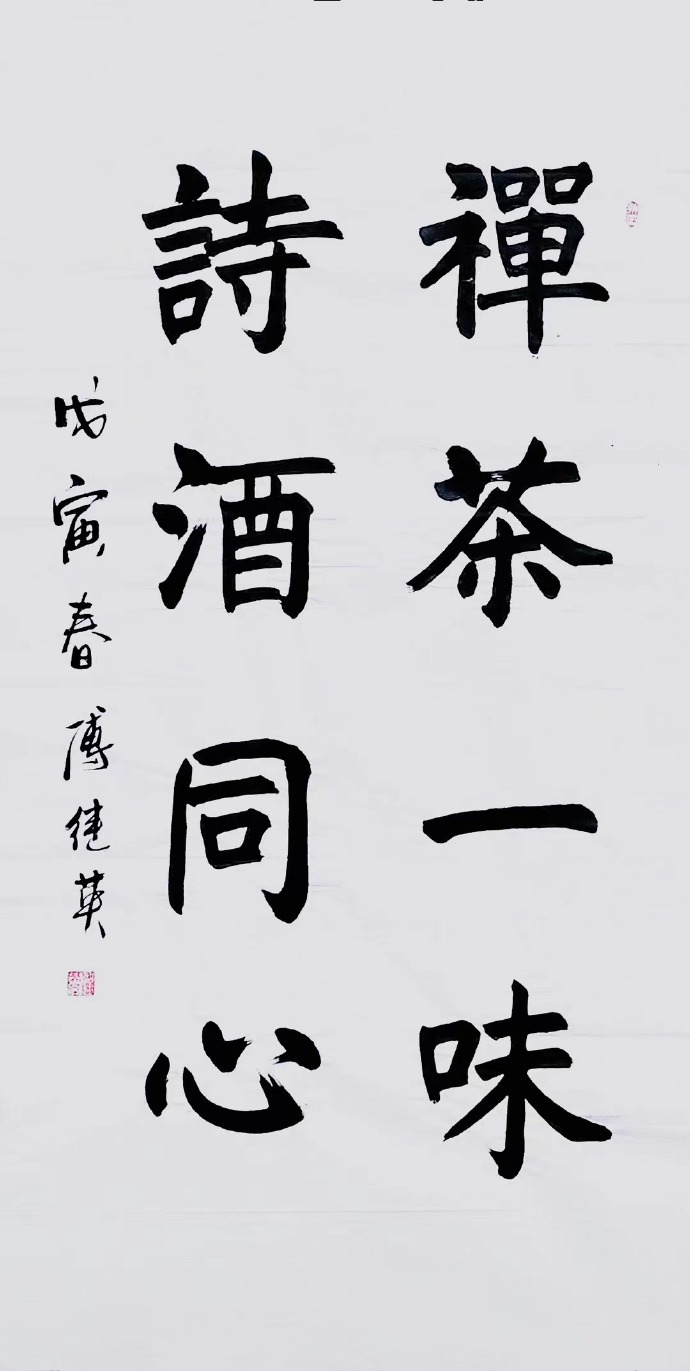 禪茶一味
詩酒同心
戊寅春傅继英